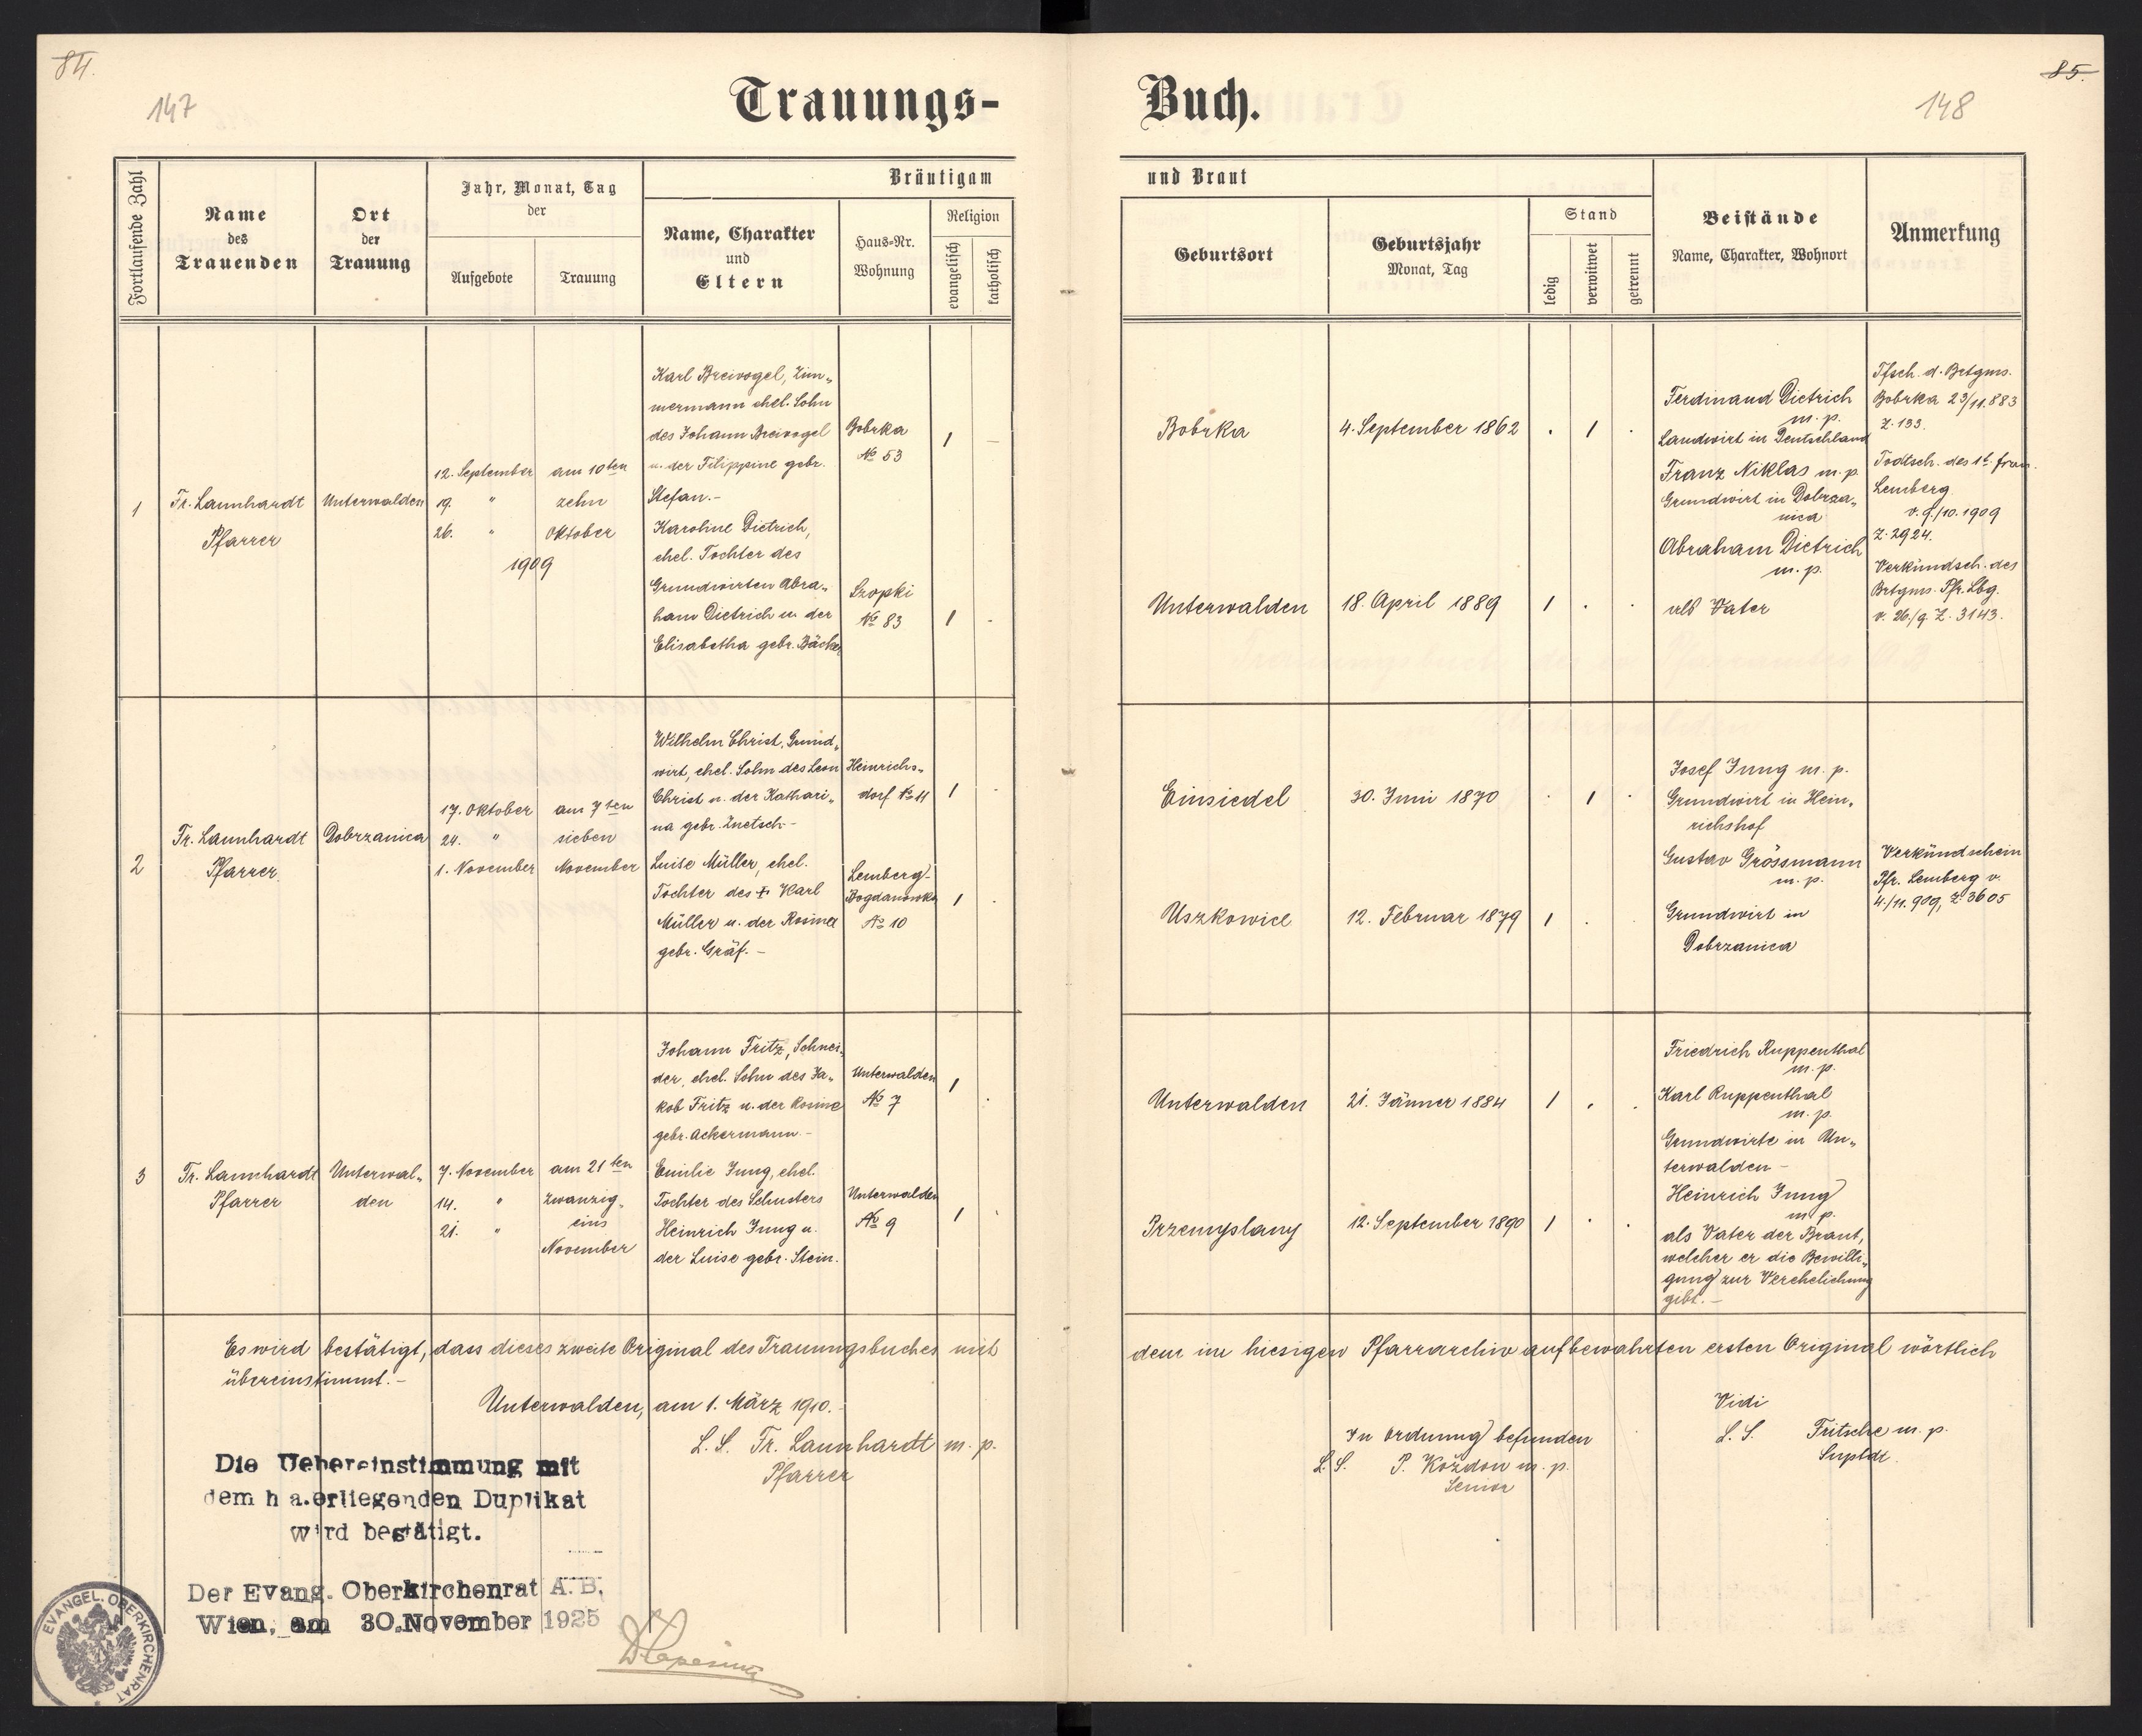 84.
147
Trauungs-
Fortlaufende Zahl
Name
des
Trauenden
Ort
der
Trauung
Jahr, Monat, Tag
der
Aufgebote
Trauung
Bräutigam
Name, Charakter
und
Eltern
Haus-Nr.
Wohnung
Religion
evangelisch
katholisch
1
Fr. Launhardt
Pfarrer
Unterwalden
12. September
19. "
26. "
am 10ten
zehn
Oktober
1909
Karl Breivogel, Zim„
mermann ehel. Sohn
des Johann Breivogel
u. der Filippine gebr.
Stefan.-
Karoline Dietrich,
ehel. Tochter des
Grundwirten Abra„
ham Dietrich u. der
Elisabetha gebr. Bäcker
Bobrka
No 53
1 –
Szopki
No 83
1 .
2
Fr. Launhardt
Pfarrer
Dobrzanica
17. Oktober
24. "
1. November
am 7ten
sieben
November
Wilhelm Christ, Grund„
wirt, ehel. Sohn des Leon
Christ u. der Kathari„
na gebr. Znetsch-
Luise Müller, ehel.
Tochter des + Karl
Müller u. der Rosina
gebr. Gräf. –
Heinrichs„
dorf No 11
1 .
Lemberg-
Bogdanowka
No 10
1 .
3
Fr. Launhardt
Pfarrer
Unterwal„
den
7. November
14. "
21. "
am 21ten
zwanzig„
eins
November
Johann Fritz, Schnei„
der, ehel. Sohn des Ja„
kob Fritz u. der Rosine
gebr. Ackermann.-
Emilie Jung, ehel.
Tochter des Schusters
Heinrich Jung u.
der Luise gebr. Stein.
Unterwalden
No 7
1 .
Unterwalden
No 9
1 .
Es wird bestätigt, dass dieses zweite Original des Trauungsbuches mit
übereinstimmt.-
Unterwalden, am 1. März 1910.-
L. S. Fr. Launhardt m. p.
Pfarrer
Die Uebereinstimmung mit
dem h a.erliegenden Duplikat
wird bestätigt.
Der Evang. Oberkirchenrat A. B.
Wien, am 30.November 1925
EVANGEL. OBERKIRCHENRAT
85.
148
Buch.
und Braut
Geburtsort
Geburtsjahr
Monat, Tag
Stand
ledig
verwitwet
getrennt
Beistände
Name, Charakter, Wohnort
Anmerkung
Bobrka
4. September 1862
. 1 .
Unterwalden
18. April 1889
1 . .
Ferdinand Dietrich
m. p.
Landwirt in Deutschland
Franz Niklas m. p.
Grundwirt in Dobrza„
nica
Abraham Dietrich
m. p.
als Vater
Tfsch. d. Brtgms.
Bobrka 23/11.883
Z. 133.
Todtsch. des 1t. frau.
Lemberg
v. 9./10. 1909
Z. 2924.
Verkündsch. des
Brtgms. Pfr. Lbg.
v. 26./9. Z. 3143.
Einsiedel
30. Juni 1870
. 1 .
Uszkowice
12. Februar 1879
1 . .
Josef Jung m. p.
Grundwirt in Hein„
richshof
Gustav Grössmann
m. p.
Grundwirt in
Dobrzanica
Verkündschein
Pfr. Lemberg v.
4./11. 909, Z. 3605
Unterwalden
21. Jänner 1884
1 . .
Przemyslany
12. September 1890
1 . .
Friedrich Ruppenthal
m. p.
Karl Ruppenthal
m. p.
Grundwirte in Un„
terwalden –
Heinrich Jung
m. p.
als Vater der Braut,
welcher er die Bewilli„
gung zur Verehelichung
gibt. –
dem im hiesigen Pfarrarchiv aufbewahrten ersten Original wörtlich
In Ordnung befunden
L. S. P. Kożdon m. p.
Senior
Vidi
L. S. Fritsche m. p.
Suptdt.